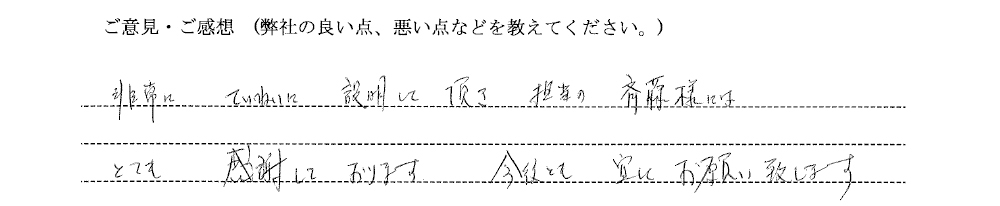 ご意見・ご感想　(弊社の良い点、悪い点などを教えてください。)
非常に　ていねいに　説明して　頂き　担当の　斉藤様には
とても　感謝して　おります　今後とも　宜しく　お願い致します